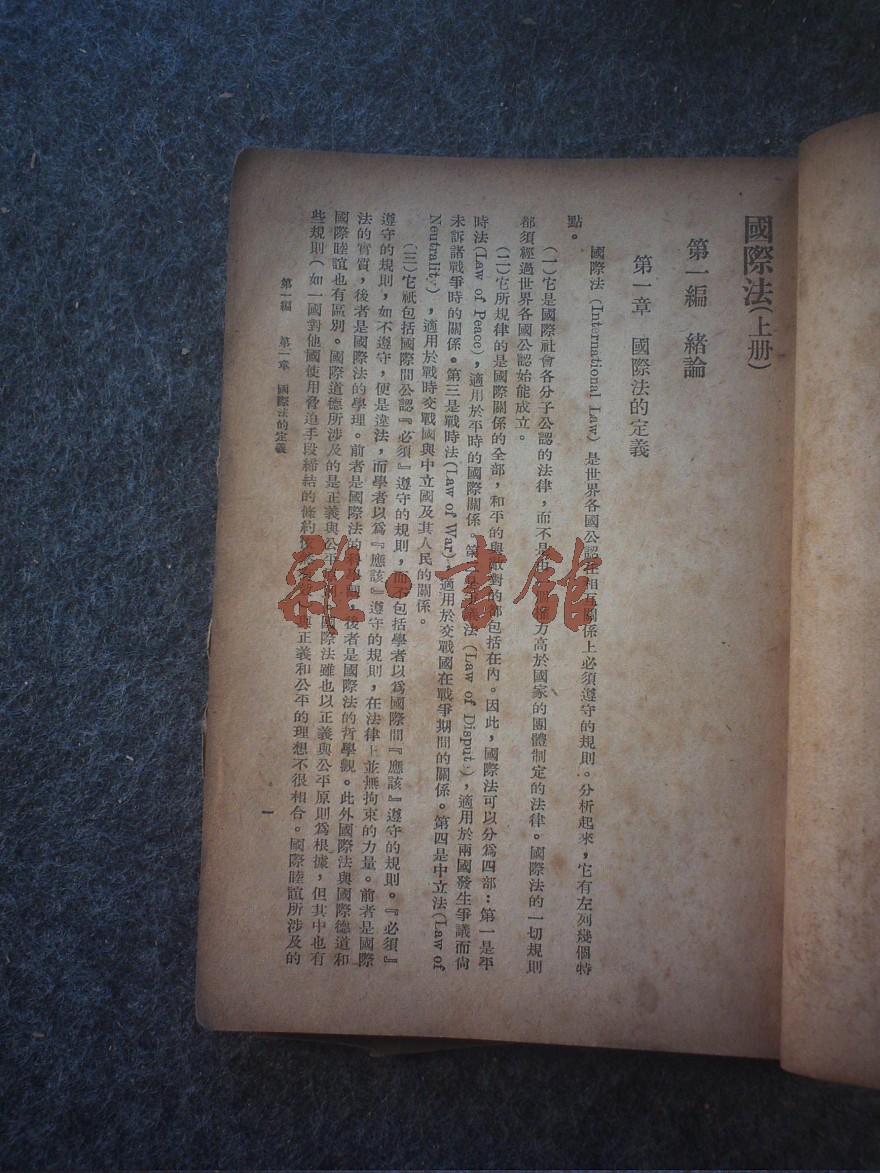 國際法(上册)
第一編 緒論
第一章 國際法的定義
國際法(International Law)是世界各國公認在相互關係上必須遵守的規則。分析起來，它有左列幾個特
點。
(一)它是國際社會各分子公認的法律，而不是由 力高於國家的團體制定的法律。國際法的一切規則
都須經過世界各國公認始能成立。
(二)它所規律的是國際關係的全部，和平的與敵對的都包括在內。因此，國際法可以分爲四部：第一是平
時法(Law of Peace)，適用於平時的國際關係。第 法(Law of Disput )，適用於兩國發生爭議而尙
未訴諸戰爭時的關係。第三是戰時法(Law of War)，適用於交戰國在戰爭期間的關係。第四是中立法(Law of
Neutrality)，適用於戰時交戰國與中立國及其人民的關係。
(三)它祇包括國際間公認『必須』遵守的規則，而不包括學者以爲國際間『應該』遵守的規則。『必須』
遵守的規則，如不遵守，便是違法，而學者以爲『應該』遵守的規則，在法律上並無拘束的力量。前者是國際
法的實質，後者是國際法的學理。前者是國際法的科學觀，後者是國際法的哲學觀。此外國際法與國際德道和
國際睦誼也有區別。國際道德所涉及的是正義與公平 國際法雖也以正義與公平原則爲根據，但其中也有
些規則(如一國對他國使用脅迫手段締結的條約 與正義和公平的理想不很相合。國際睦誼所涉及的
第一編 第一章 國際法的定義
一
雜·書館